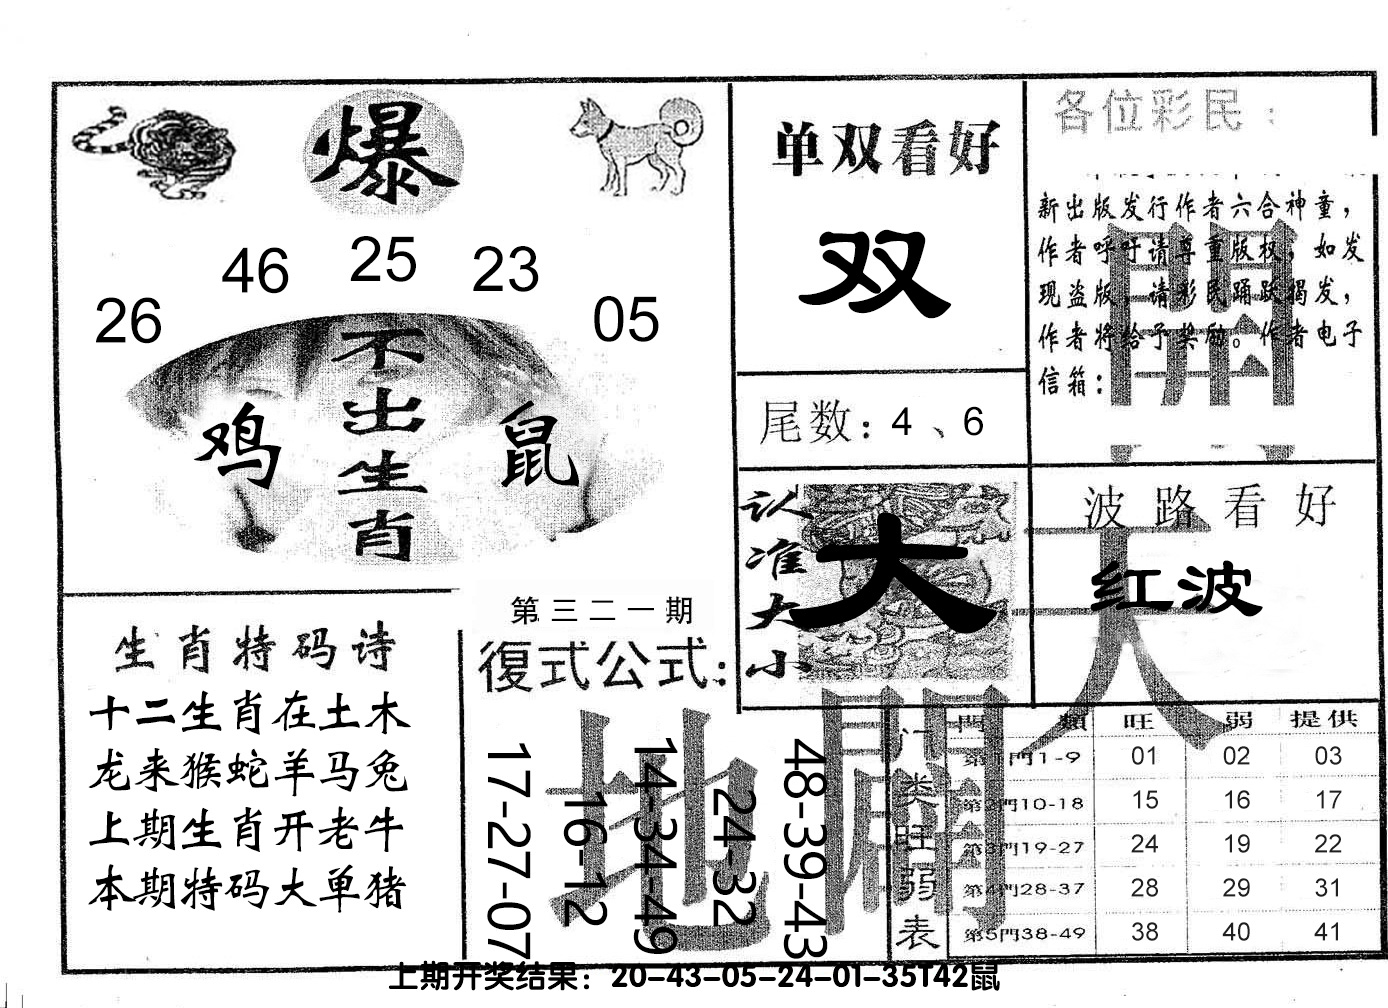 爆
26
46
25
23
05
不出生肖
鸡
鼠
单双看好
双
尾数：4、6
各位彩民：
新出版发行作者六合神童，
作者呼吁请尊重版权，如发
现盗版，请彩民踊跃揭发，
作者将给予奖励。作者电子
信箱：
認准大小
大
波路看好
红波
生肖特码诗
十二生肖在土木
龙来猴蛇羊马兔
上期生肖开老牛
本期特码大单猪
第三二一期
復式公式：
17-27-07
16-12
14-34-49
24-32
48-39-43
天
地
门类旺弱表
門類 旺 弱 提供
第1門1-9 01 02 03
第2門10-18 15 16 17
第3門19-27 24 19 22
第4門28-37 28 29 31
第5門38-49 38 40 41
上期开奖结果：20-43-05-24-01-35T42鼠